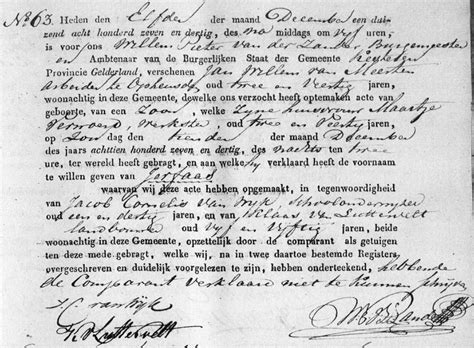 No 63. Heden den Elfden der maand December een dui-
zend acht honderd zeven en dertig, des na middags om vyf uren,
is voor ons Willem Pieter van der Burgemeester
en Ambtenaar van de Burgerlijken Staat der Gemeente
Provincie Gelderland, verschenen Jan Willem van Meerten
Arbeider te oud twee en Veertig jaren,
woonachtig in deze Gemeente, dewelke ons verzocht heeft optemaken acte van
geboorte, van een Zoon, welke Zyne huisvrouw Maartje
Verwoerd, oud twee en Veertig Jaren,
op den dag der maand December
des jaars achttien honderd zeven en dertig, des nachts ten twee
ure, ter wereld heeft gebragt, en aan welke hy verklaard heeft de voornaam
te willen geven van
waarvan wij deze acte hebben opgemaakt, in tegenwoordigheid
van Jacob Cornelis van Schoolonderwyzer
oud een en dertig jaren, en van Klaas van Luttervelt
landbouwer oud vyf en vyftig jaren, beide
woonachtig in deze Gemeente, opzettelijk door de comparant als getuigen
ten deze mede gebragt, welke wij, na in twee daartoe bestemde Registers
overgeschreven en duidelijk voorgelezen te zijn, hebben onderteekend, hebbende
de Comparant verklaard niet te kunnen schryven